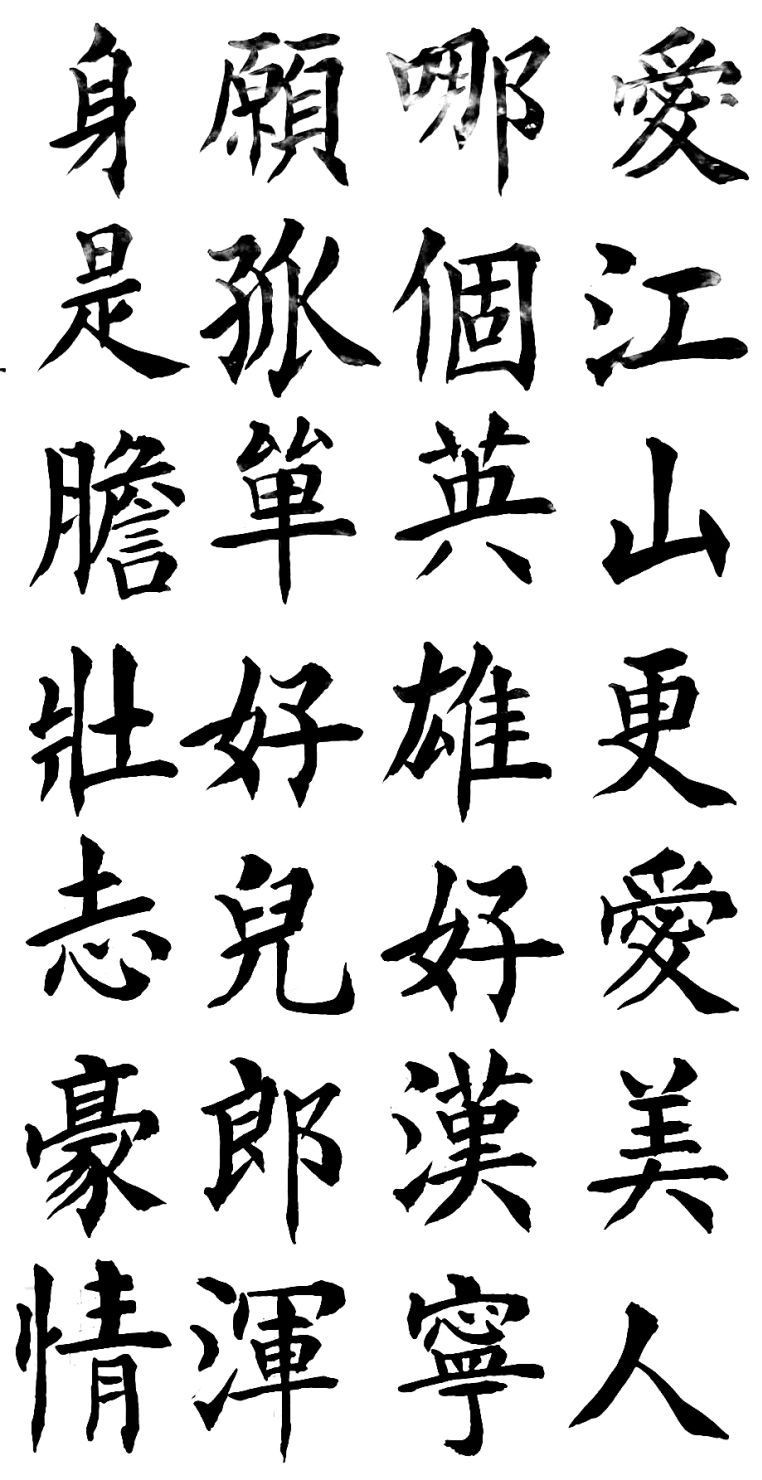 愛江山更愛美人
哪個英雄好漢寧
願孤單好兒郎渾
身是膽壯志豪情